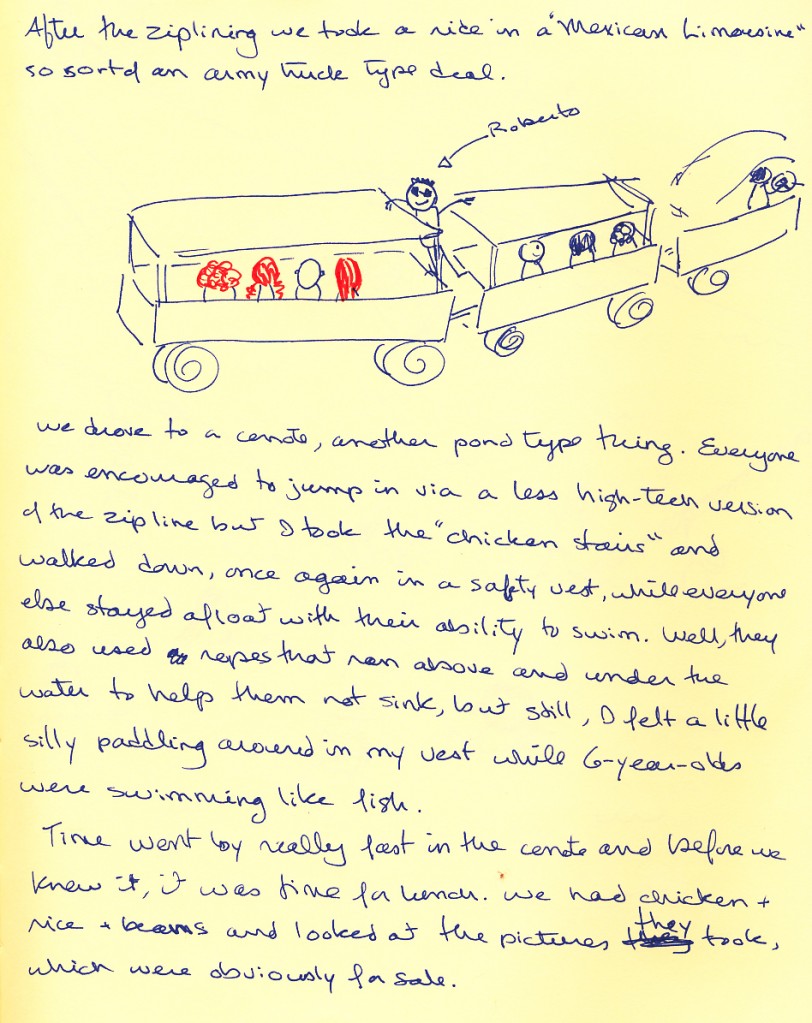 After the ziplining we took a ride in a "Mexican Limousine"
so sorta an army truck type deal.
Roberto
we drove to a cenote, another pond type thing. Everyone
was encouraged to jump in via a less high-tech version
of the zipline but I took the "chicken stairs" and
walked down, once again in a safety vest, while everyone
else stayed afloat with their ability to swim. Well, they
also used ropes that ran above and under the
water to help them not sink, but still, I felt a little
silly paddling around in my vest while 6-year-olds
were swimming like fish.
Time went by really fast in the cenote and before we
knew it, it was time for lunch. we had chicken +
rice + beans and looked at the pictures they took,
which were obviously for sale.